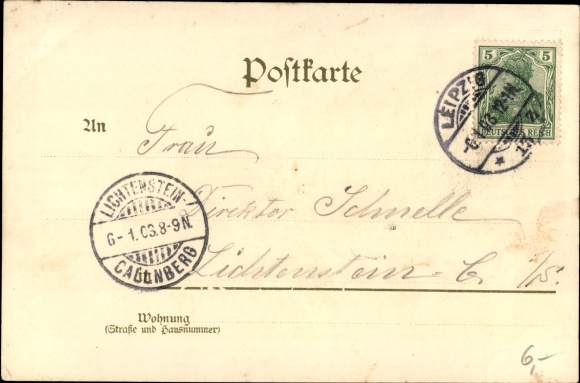 Postkarte
5 5
DEUTSCHES REICH
LEIPZIG
An
Frau
LICHTENSTEIN-
6-1.03.8-9N.
CALLNBERG
Direktor Schnelle
Lichtenstein-C. i/S.
Wohnung
(Straße und Hausnummer)
6,-